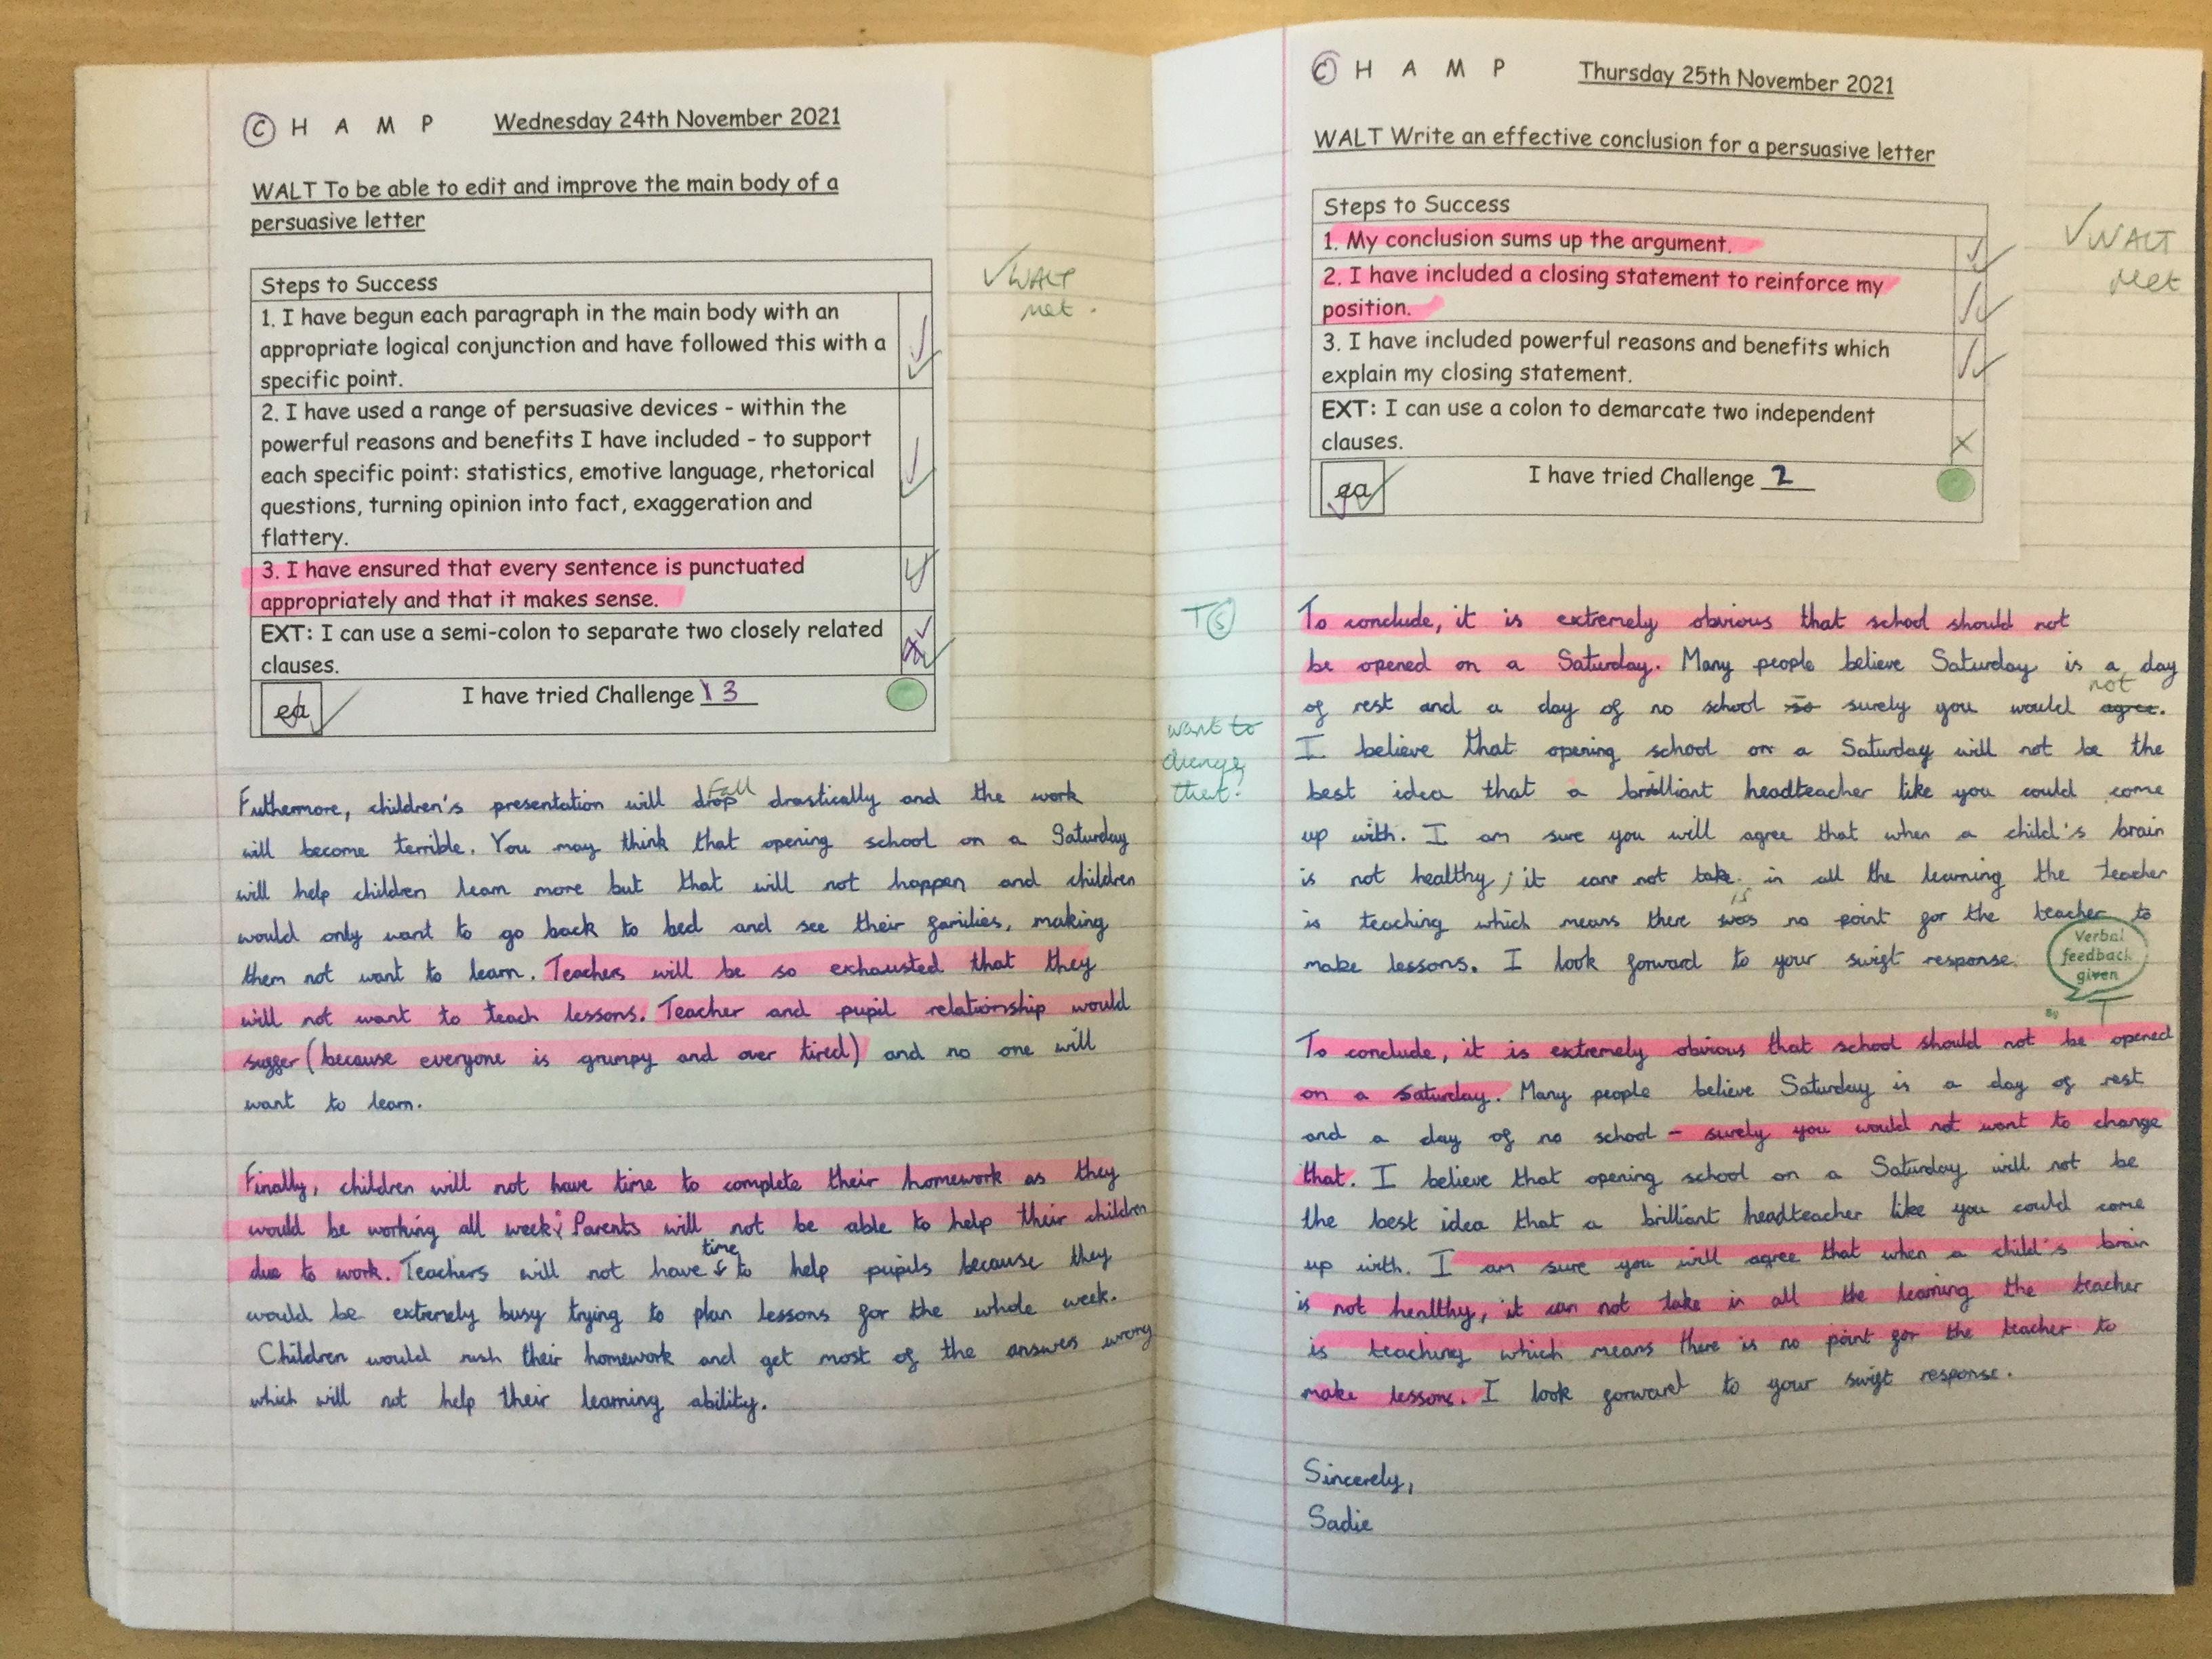 C H A M P Wednesday 24th November 2021
WALT To be able to edit and improve the main body of a
persuasive letter
Steps to Success
1. I have begun each paragraph in the main body with an
appropriate logical conjunction and have followed this with a
specific point.
2. I have used a range of persuasive devices - within the
powerful reasons and benefits I have included - to support
each specific point: statistics, emotive language, rhetorical
questions, turning opinion into fact, exaggeration and
flattery.
3. I have ensured that every sentence is punctuated
appropriately and that it makes sense.
EXT: I can use a semi-colon to separate two closely related
clauses.
I have tried Challenge 3
✓ WALT
met.
Futhermore, children's presentation will drop fall drastically and the work
will become terrible. You may think that opening school on a Saturday
will help children learn more but that will not happen and children
would only want to go back to bed and see their families, making
them not want to learn. Teachers will be so exhausted that they
will not want to teach lessons. Teacher and pupil relationship would
suffer (because everyone is grumpy and over tired) and no one will
want to learn.
Finally, children will not have time to complete their homework as they
would be working all week; Parents will not be able to help their children
due to work. Teachers will not have time to help pupils because they
would be extremely busy trying to plan lessons for the whole week.
Children would rush their homework and get most of the answers wrong
which will not help their learning ability.
C H A M P Thursday 25th November 2021
WALT Write an effective conclusion for a persuasive letter
Steps to Success
1. My conclusion sums up the argument.
2. I have included a closing statement to reinforce my
position.
3. I have included powerful reasons and benefits which
explain my closing statement.
EXT: I can use a colon to demarcate two independent
clauses.
I have tried Challenge 2
✓ WALT
Met
T S
To conclude, it is extremely obvious that school should not
be opened on a Saturday. Many people believe Saturday is a day
of rest and a day of no school so surely you would agree. not
want to
change
that.
I believe that opening school on a Saturday will not be the
best idea that a brilliant headteacher like you could come
up with. I am sure you will agree that when a child's brain
is not healthy, it can not take in all the learning the teacher
is teaching which means there was is no point for the teacher to
make lessons. I look forward to your swift response.
Verbal
feedback
given
By T
To conclude, it is extremely obvious that school should not be opened
on a Saturday. Many people believe Saturday is a day of rest
and a day of no school - surely you would not want to change
that. I believe that opening school on a Saturday will not be
the best idea that a brilliant headteacher like you could come
up with. I am sure you will agree that when a child's brain
is not healthy, it can not take in all the learning the teacher
is teaching which means there is no point for the teacher to
make lessons. I look forward to your swift response.
Sincerely,
Sadie